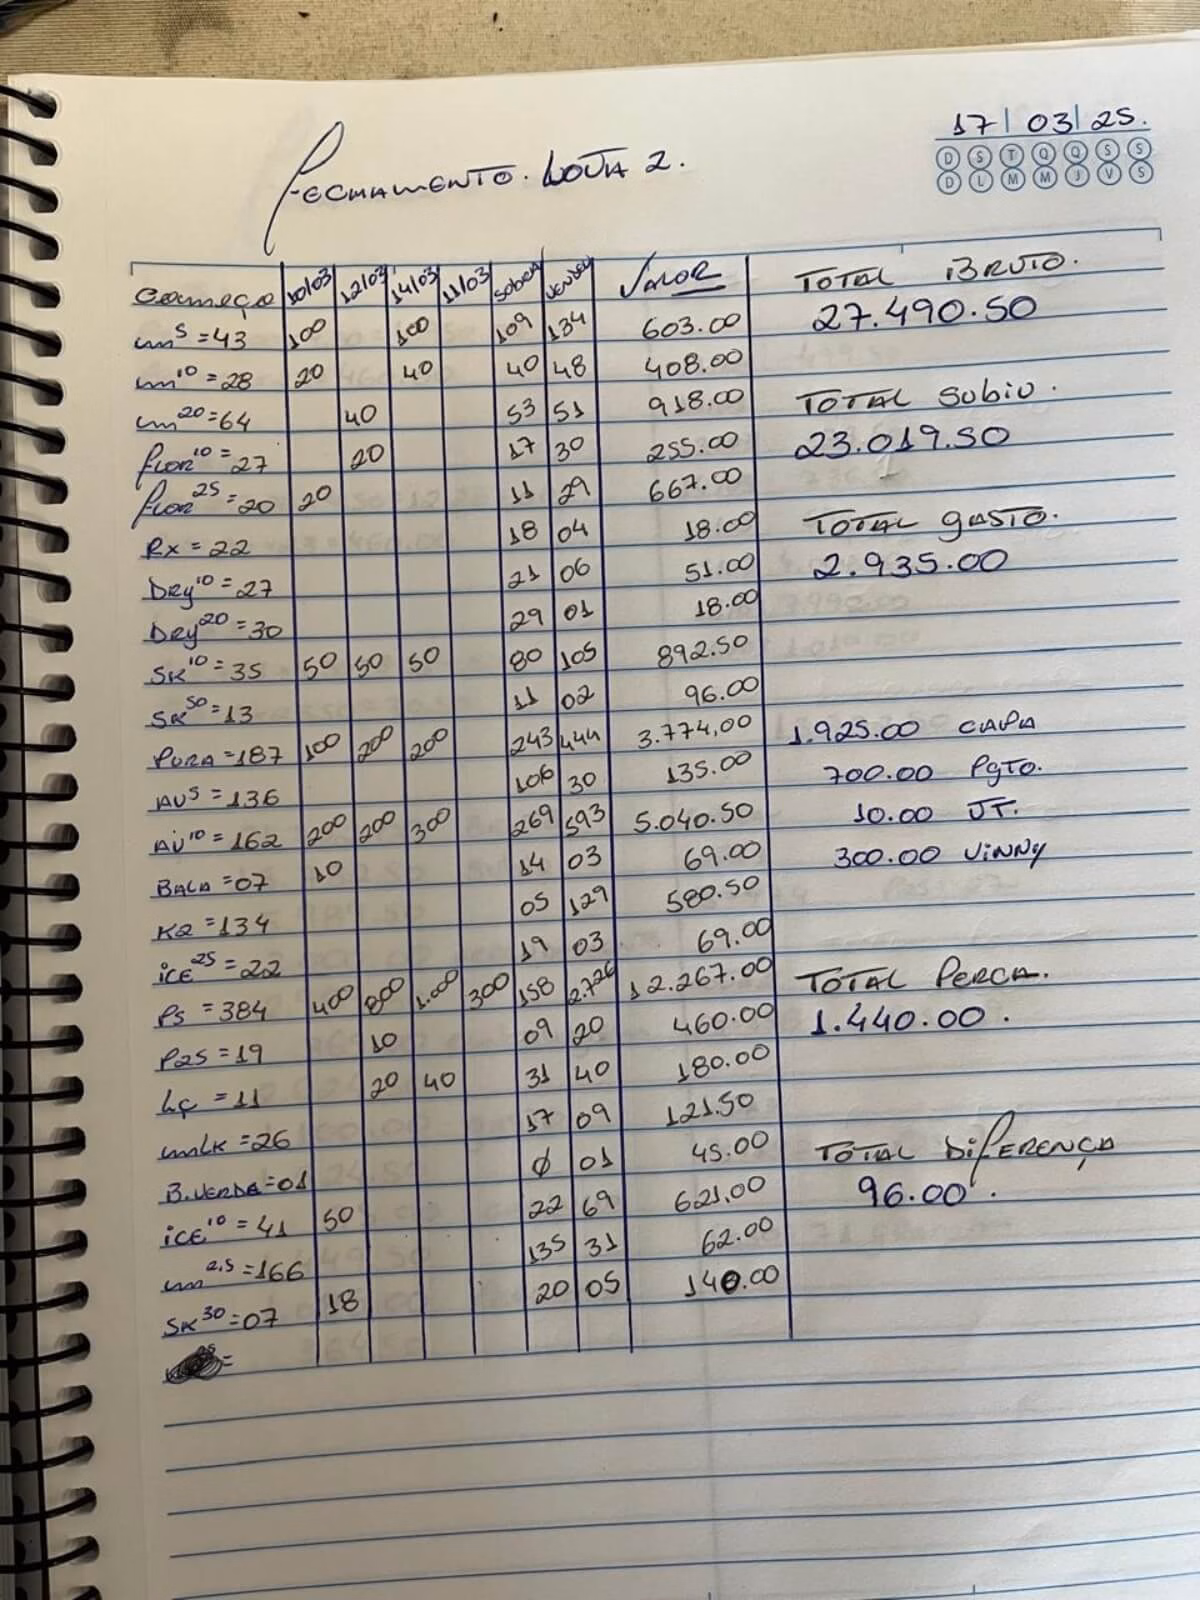 17/ 03/ 25.
D S T Q Q S S
D L M M J V S
FECHAMENTO. LOJA 2.
COMEÇO 10/03 12/03 14/03 11/03 SOBRA VENDEU VALOR
m5 = 43 100 100 109 134 603.00
m10 = 28 20 40 40 48 408.00
m20 = 64 40 53 51 918.00
FLOR10 = 27 20 17 30 255.00
FLOR25 = 20 20 11 29 667.00
RX = 22 18 04 18.00
DRY10 = 27 21 06 51.00
DRY20 = 30 29 01 18.00
SK10 = 35 50 50 50 80 105 892.50
SK50 = 13 11 02 96.00
PURA = 187 100 200 200 243 444 3.774,00
AU5 = 136 106 30 135.00
AU10 = 162 200 200 300 269 593 5.040.50
BALA = 07 10 14 03 69.00
K2 = 134 05 129 580.50
ICE25 = 22 19 03 69.00
P5 = 384 400 800 1.000 300 158 2.726 12.267.00
P25 = 19 10 09 20 460.00
LÇ = 11 20 40 31 40 180.00
mLK = 26 17 09 121.50
B.VERDA = 01 Ø 01 45.00
ICE10 = 41 50 22 69 621,00
m2,5 = 166 135 31 62.00
SK30 = 07 18 20 05 140.00
TOTAL BRUTO.
27.490.50
TOTAL SUBIU.
23.019.50
TOTAL GASTO.
2.935.00
1.925.00 CAPA
700.00 PGTO.
10.00 JT.
300.00 VINNY
TOTAL PERCA.
1.440.00.
TOTAL DIFERENÇA
96.00.